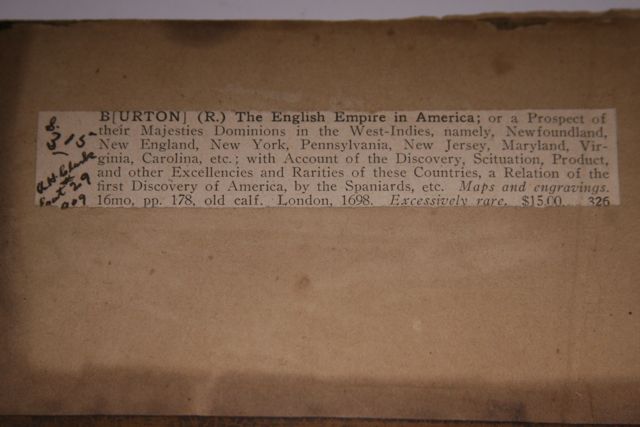 B[URTON] (R.) The English Empire in America; or a Prospect of
their Majesties Dominions in the West-Indies, namely, Newfoundland,
New England, New York, Pennsylvania, New Jersey, Maryland, Vir-
ginia, Carolina, etc.; with Account of the Discovery, Scituation, Product,
and other Excellencies and Rarities of these Countries, a Relation of the
first Discovery of America, by the Spaniards, etc. Maps and engravings.
16mo, pp. 178, old calf. London, 1698. Excessively rare. $15.00. 326
8.
3/15
29